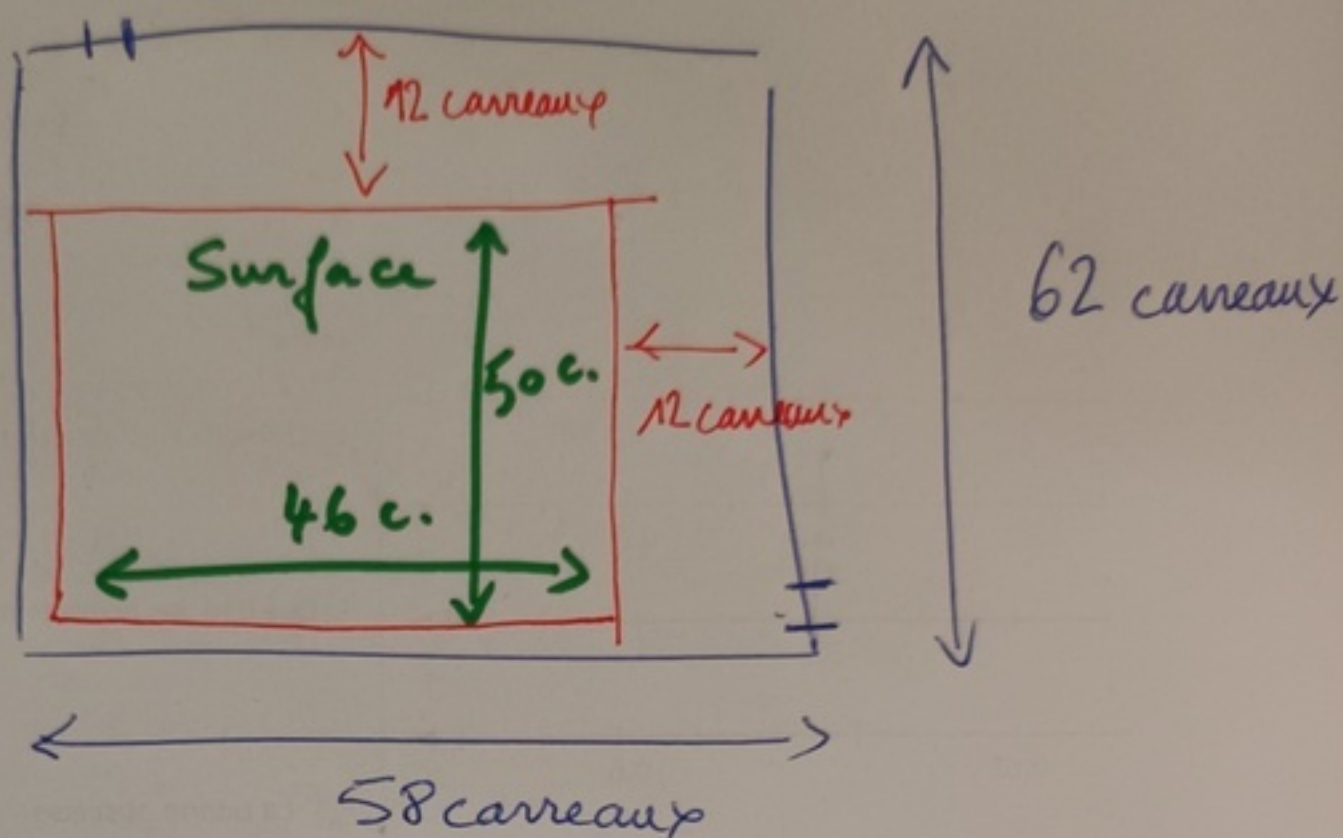 12 carreaux
Surface
50 c.
62 carreaux
12 carreaux
46 c.
58 carreaux